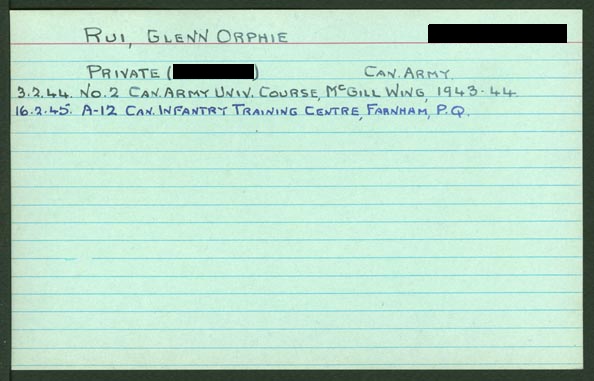 RUI, GLENN ORPHIE
PRIVATE ( ) CAN. ARMY.
3.2.44. NO. 2 CAN. ARMY UNIV. COURSE, McGILL WING, 1943-44
16.2.45. A-12 CAN. INFANTRY TRAINING CENTRE, FARNHAM, P.Q.